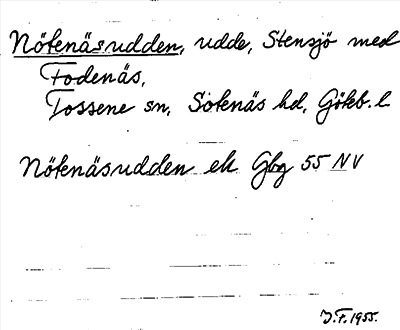 Nötenäsudden, udde, Stensjö med
Fodenäs,
Tossene sn, Sotenäs hd, Göteb. l.
Nötenäsudden ek Gbg 55 NV
J.F. 1955.